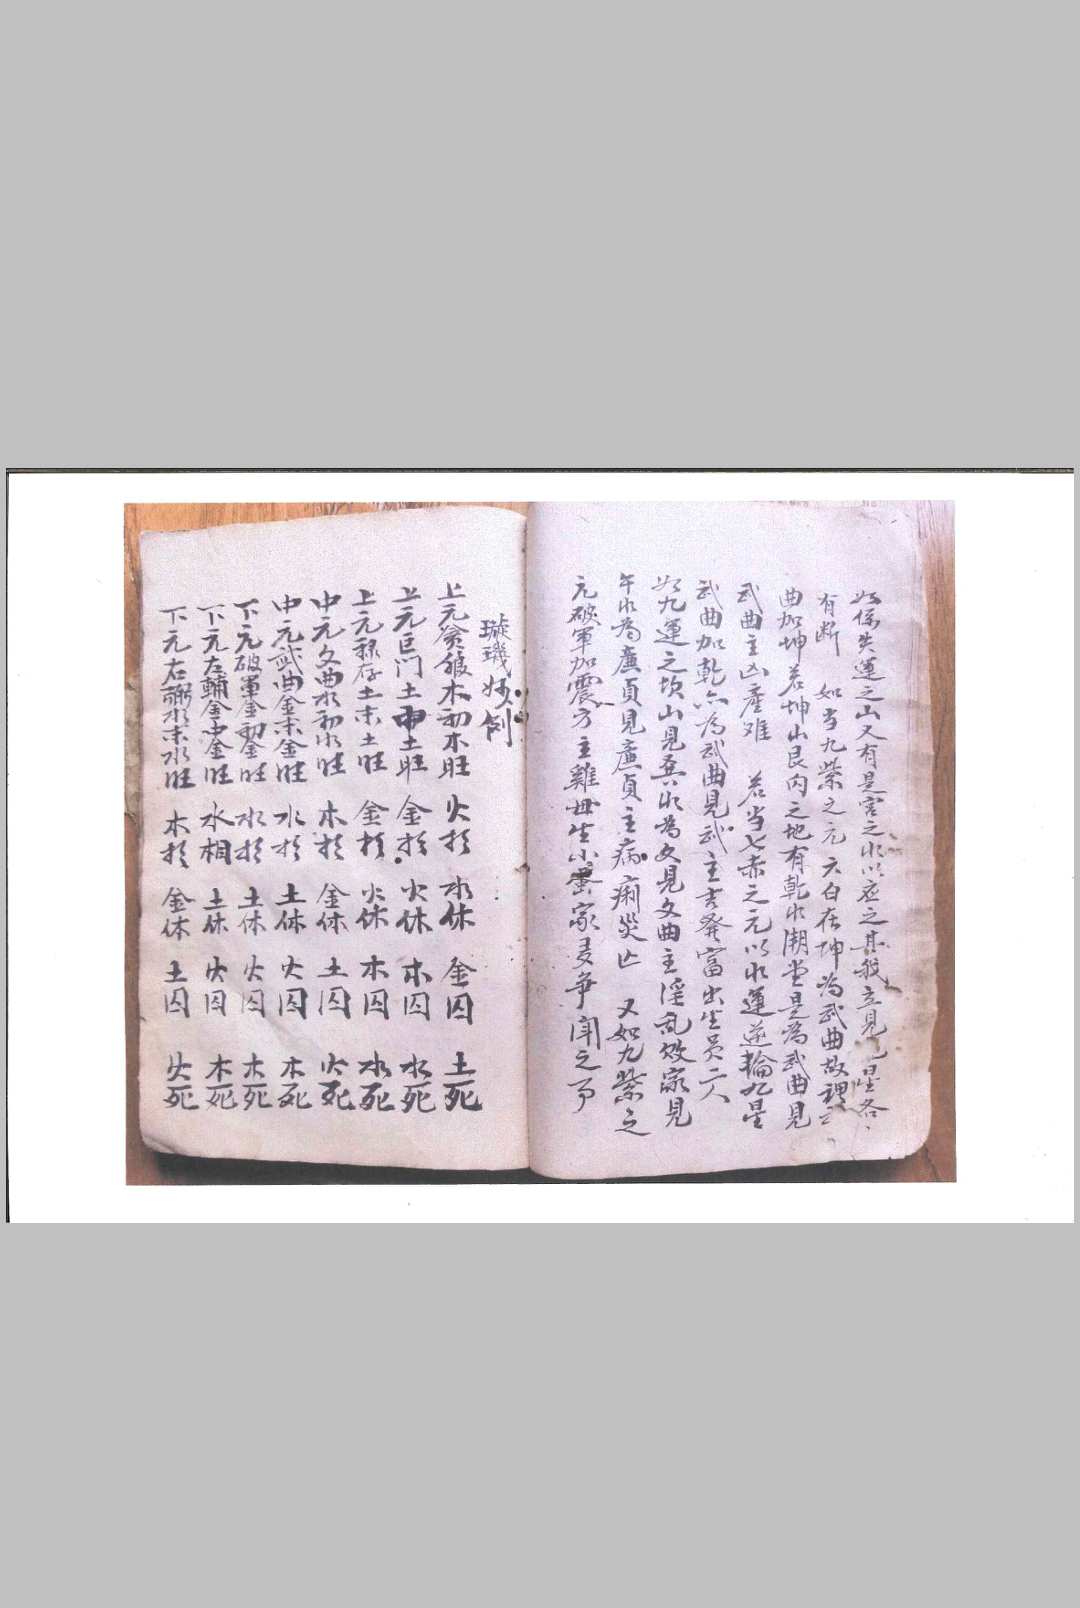 如係失運之山又有是宮之水以应之其我立見九星各
有断　如当九紫之元六白在坤為武曲故理云
曲加坤若坤山艮向之地有乾水潮堂是為武曲見
武曲主凶産难　若当七赤之元以水運逆輪九星
武曲加乾六為武曲見武主吉発富出生員一人
如九運之坎山見巽水為文見文曲主淫乱敗家見
午水為廉貞見廉貞主病痢災亡　又如九紫之
元破軍加震方主雞母生小蛋家多争闹之事
璇璣妙例
上元貪狼木初木旺　火相　水休　金囚　土死
上元巨門土中土旺　金相　火休　木囚　水死
上元祿存土末土旺　金相　火休　木囚　水死
中元文曲水初水旺　木相　金休　土囚　火死
中元武曲金末金旺　水相　土休　火囚　木死
下元破軍金初金旺　水相　土休　火囚　木死
下元左輔金中金旺　水相　土休　火囚　木死
下元右弼水末水旺　木相　金休　土囚　火死